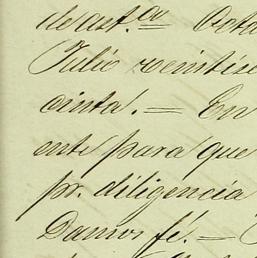 de ast.ª Octa
Julio veintise
cinta. — En
ente para que
pr. diligencia
Damos fé. —